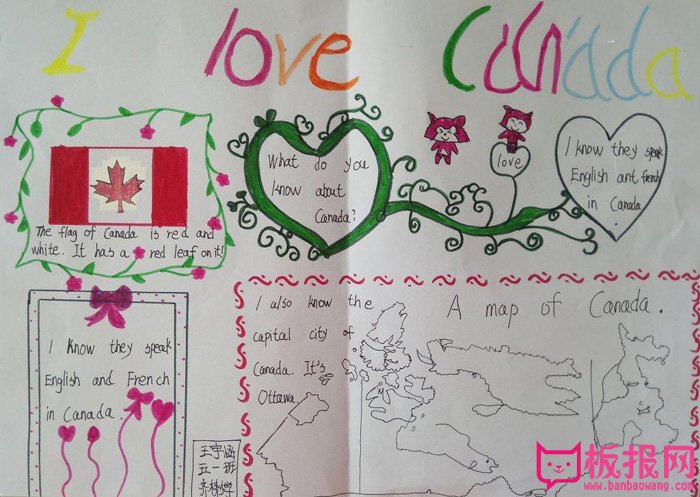 I love Canada
The flag of Canada is red and
white. It has a red leaf on it!
What do you
know about
Canada?
love
I know they speak
English ant french
in Canada
I know they speak
English and French
in Canada
I also know the
capital city of
Canada. It's
Ottawa
A map of Canada.
王宇涵
五一班
板报网
www.banbaowang.com